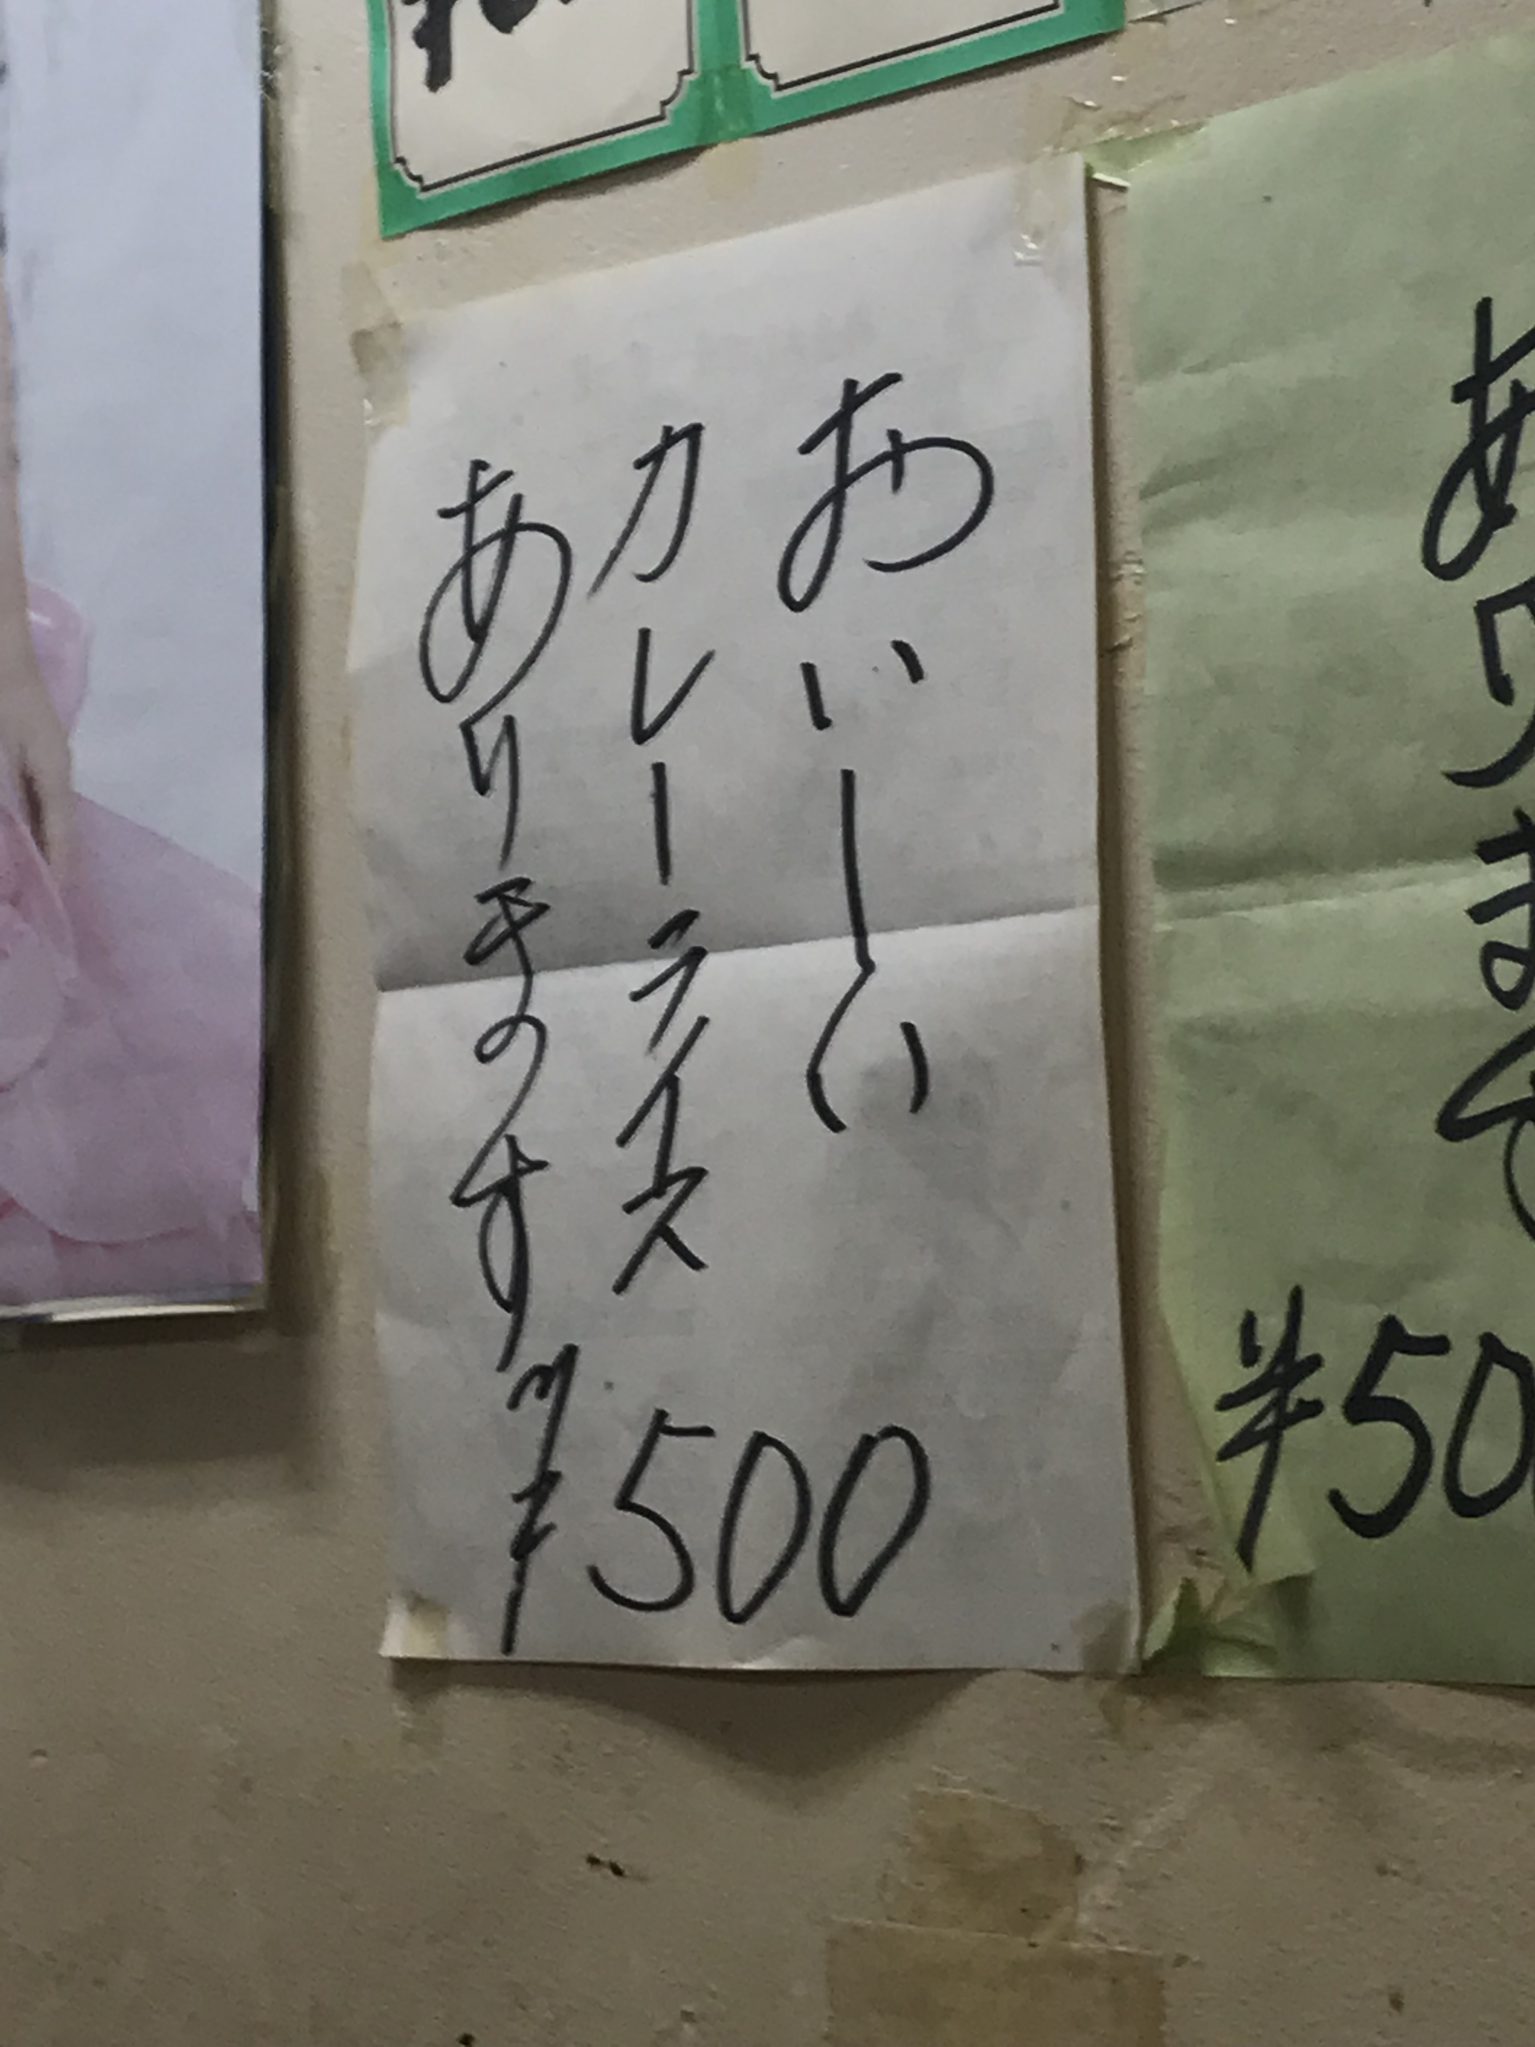 おいしい
カレーライス
あります
¥500
あります
¥50